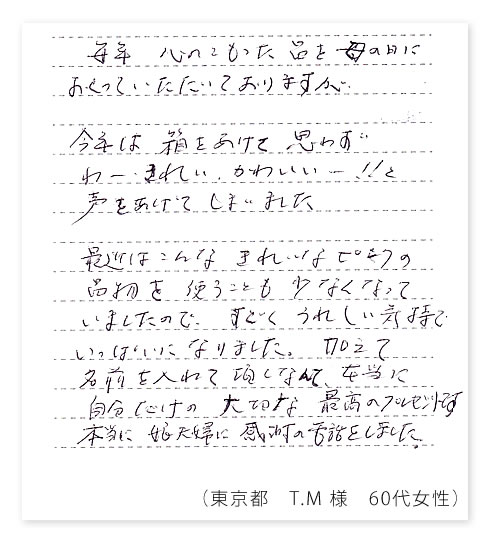 毎年 心のこもった品を母の日に
おくっていただいておりますが
今年は 箱をあけて 思わず
わー きれい、かわいいー!!と
声をあげて しまいました
最近はこんな きれいなピンクの
品物を 使うことも 少なくなって
いましたので、すごく うれしい気持で
いっぱいに なりました。加えて
名前を入れて頂くなんて、本当に
自分だけの 大切な 最高のプレゼントです
本当に 娘夫婦に 感謝の電話をしました。
(東京都 T.M 様 60代女性)